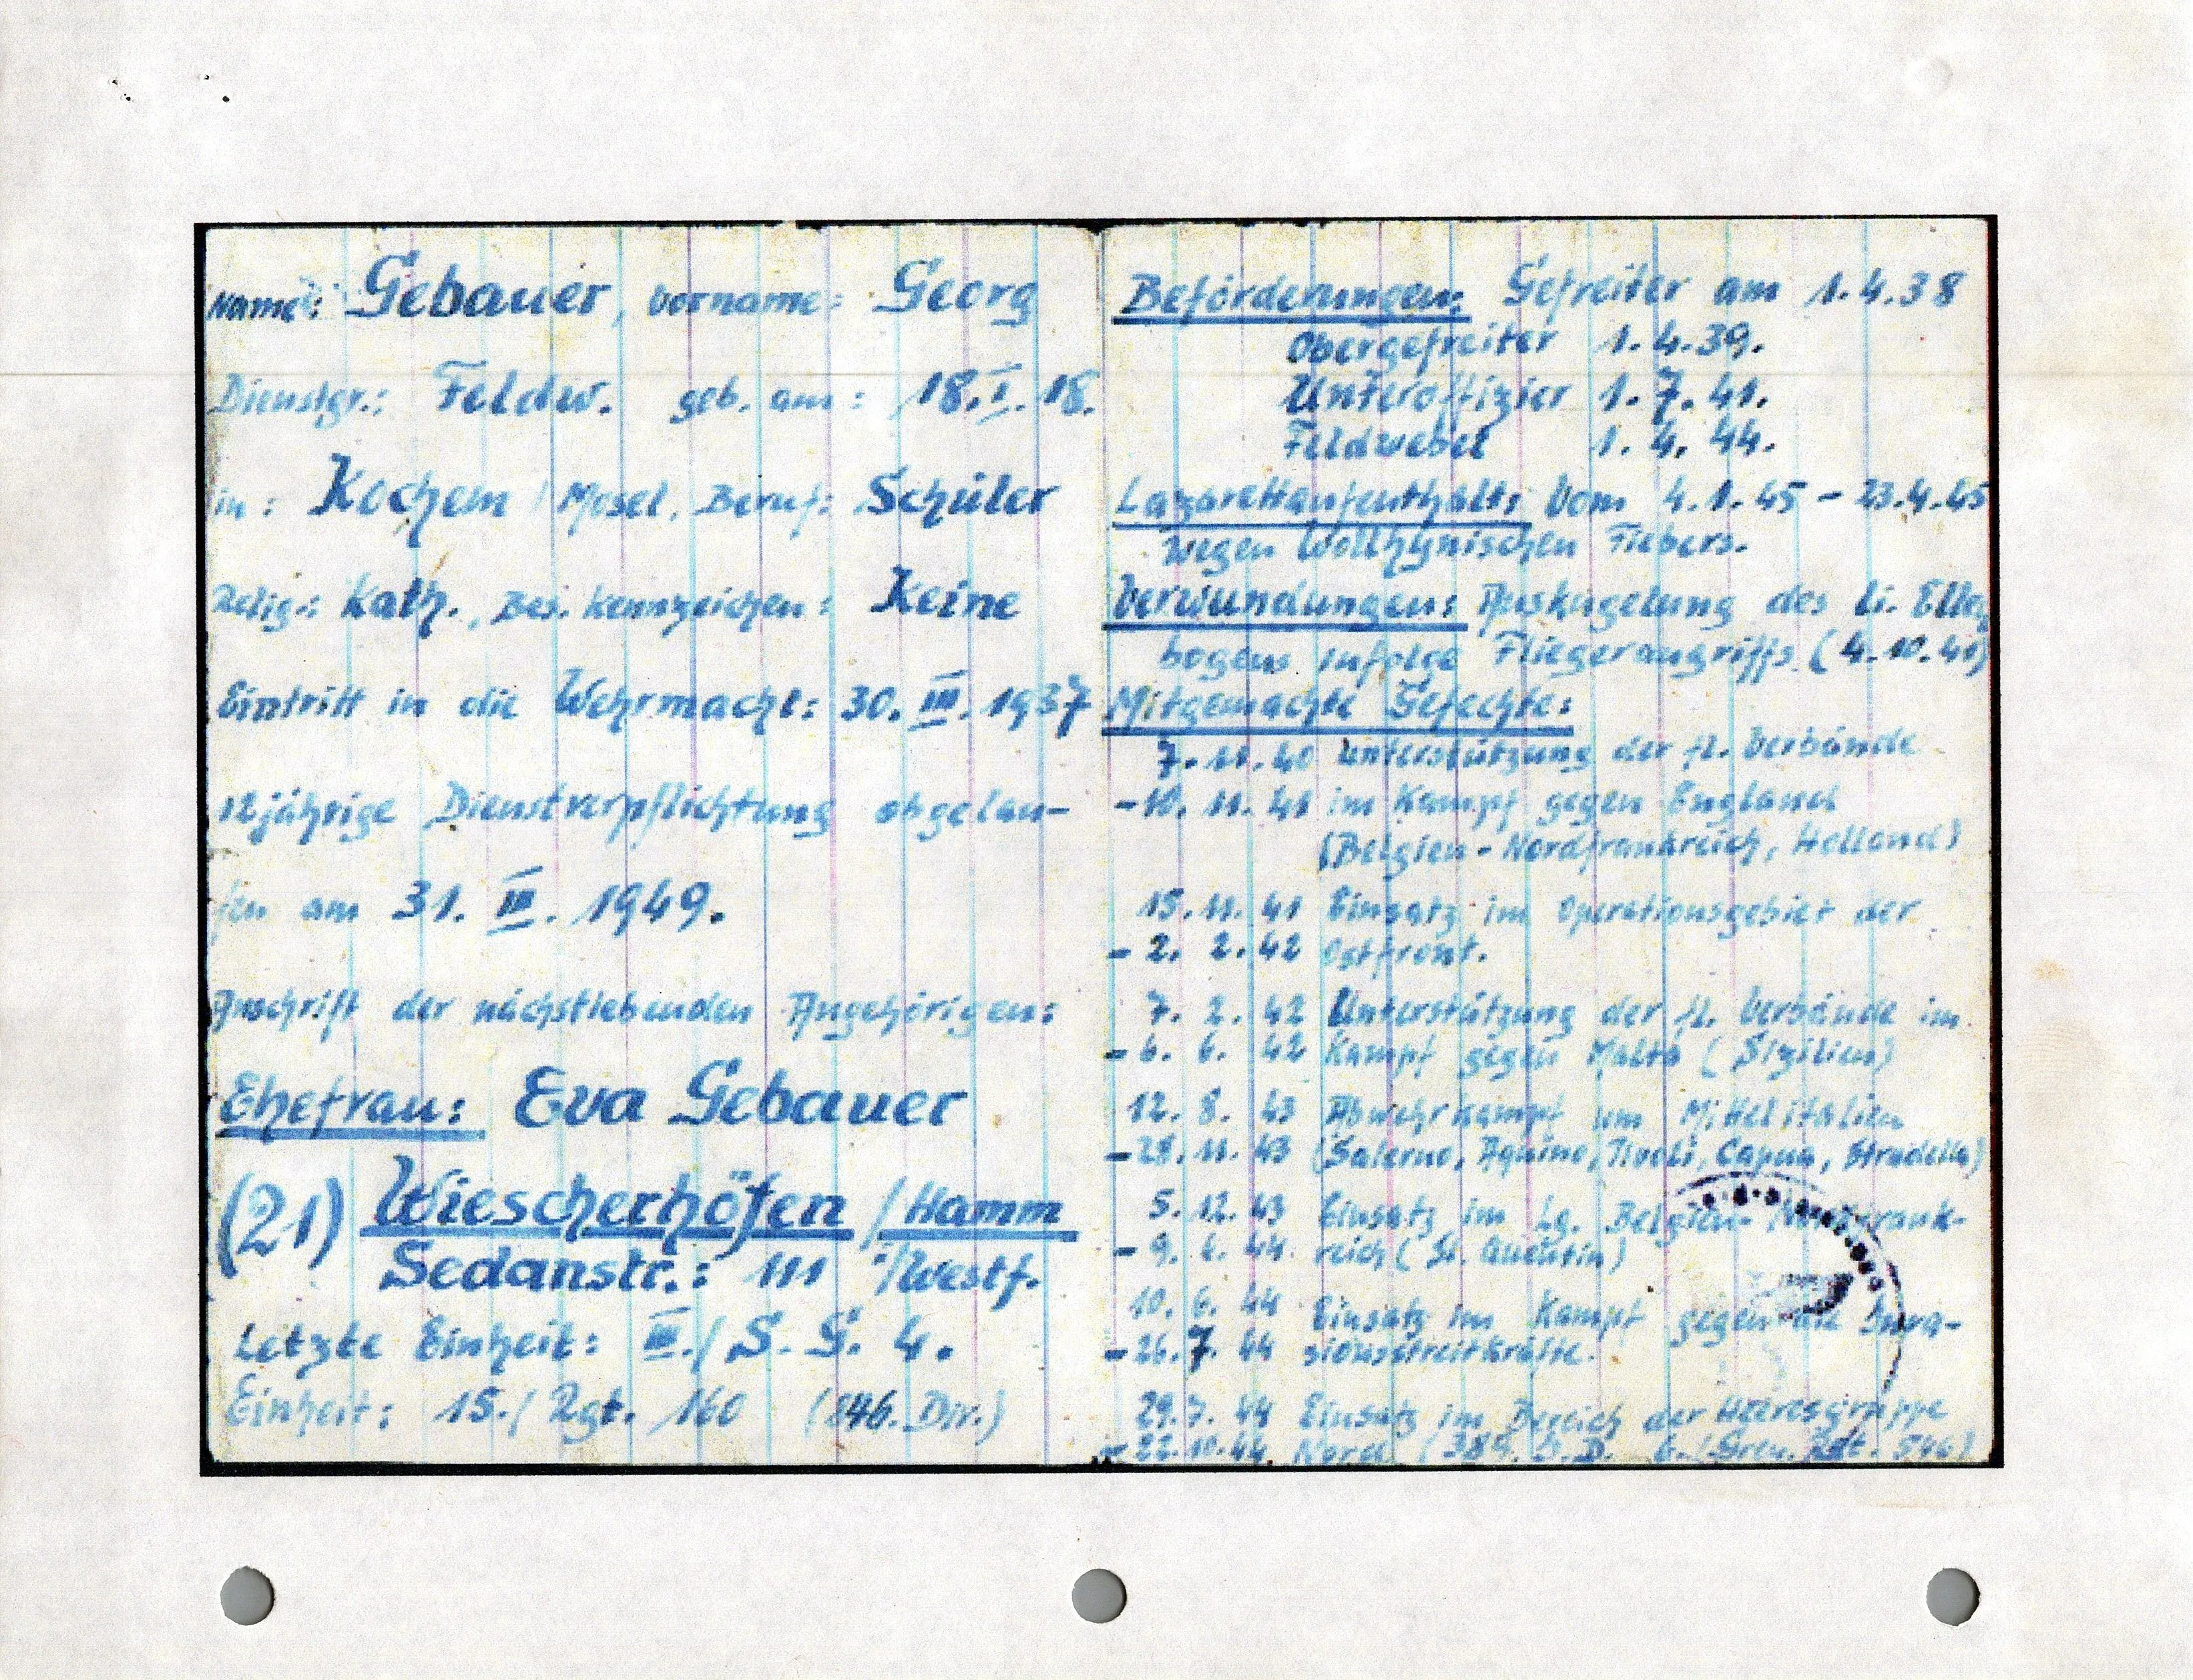 Name: Gebauer, Vorname: Georg
Dienstgr.: Feldw. geb. am: 18.I.18.
in: Kochem / Mosel, Beruf: Schüler
Relig.: Kath., Bes. Kennzeichen: Keine
Eintritt in die Wehrmacht: 30. III. 1937
12jährige Dienstverpflichtung abgelau-
fen am 31. III. 1949.
Anschrift der nächstlebenden Angehörigen:
Ehefrau: Eva Gebauer
(21) Wiescherhöfen / Hamm
Sedanstr.: 111 /Westf.
Letzte Einheit: III./ S. G. 4.
Einheit: 15./ Rgt. 160 (846. Div.)
Beförderungen: Gefreiter am 1.4.38
Obergefreiter 1.4.39.
Unteroffizier 1.7.41.
Feldwebel 1.4.44.
Lazarettaufenthalt: Vom 4.1.45 - 23.4.45
wegen Wollhynischen Fiebers.
Verwundungen: Auskugelung des li. Ellen
bogens infolge Fliegerangriffs (4.10.41)
Mitgemachte Gefechte:
7.11.40 Unterstützung der fl. Verbände
-10.11.41 im Kampf gegen England
(Belgien - Nordfrankreich, Holland)
15.11.41 Einsatz im Operationsgebiet der
- 2. 2.42 Ostfront.
7. 2. 42 Unterstützung der fl. Verbände im
- 6. 6. 42 Kampf gegen Malta (Sizilien)
12. 8. 43 Abwehrkampf um Mittelitalien
-28.11.43 (Salerno, Aquino, Tivoli, Capua, Stradella)
5.12.43 Einsatz im Lg. Belgien-Nordfrank-
- 9. 6. 44 reich (St. Quentin)
10. 6. 44 Einsatz im Kampf gegen die Inva-
- 26.7. 44 sionsstreitkräfte.
29.7. 44 Einsatz im Bereich der Heeresgruppe
- 22.10.44. Nord (389. I.D. 6./Gren. Rgt. 546)